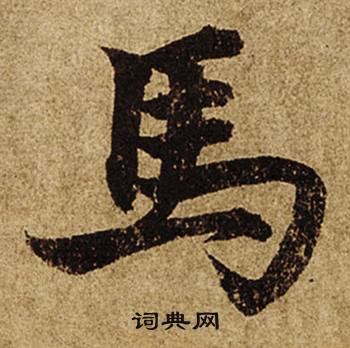 馬
词典网